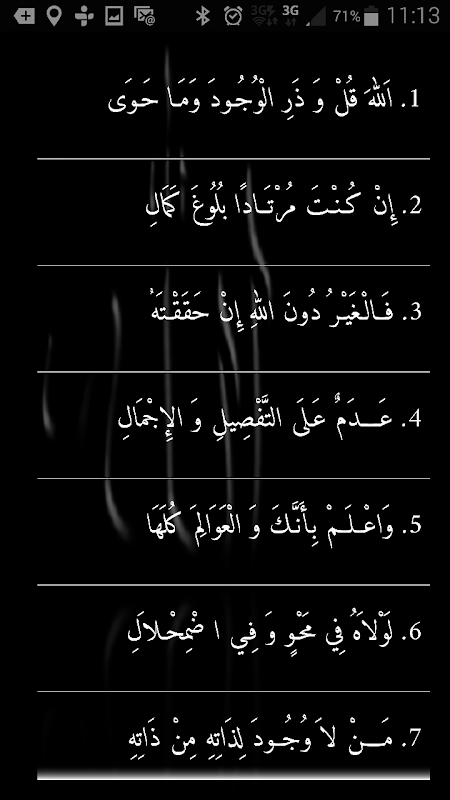 3G 3G 71% 11:13
1. اَللهَ قُلْ وَ ذَرِ الْوُجُودَ وَمَـا حَـوَى
2. إِنْ كُـنْـتَ مُرْتَـادًا بُلُوغَ كَمَالِ
3. فَـالْـغَيْـرُ دُونَ اللهِ إِنْ حَقَقْـتَهُ
4. عَـــدَمٌ عَـلَى التَّفْصِيلِ وَ الإِجْمَالِ
5. وَاعْـلَـمْ بِأَنَّـكَ وَ الْعَوَالِمَ كُلَهَا
6. لَوْلاَهُ فِي مَحْوٍ وَ فِـي ا ضْمِحْـلاَلِ
7. مَـــنْ لاَ وُجُـودَ لِذَاتِهِ مِنْ ذَاتِهِ